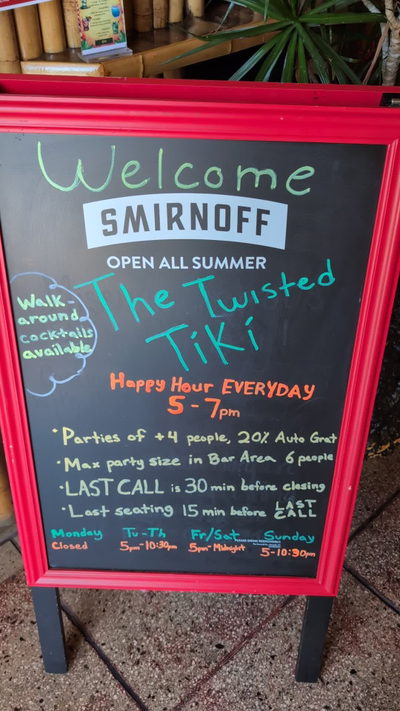 Welcome
SMIRNOFF
OPEN ALL SUMMER
The Twisted
Tiki
Walk-
around
cocktails
available
Happy Hour EVERYDAY
5-7pm
• Parties of +4 people, 20% Auto Grat
• Max party size in Bar Area 6 people
• LAST CALL is 30 min before closing
• Last seating 15 min before LAST CALL
Monday Tu-Th Fr/Sat Sunday
Closed 5pm-10:30pm 5pm-Midnight 5-10:30pm